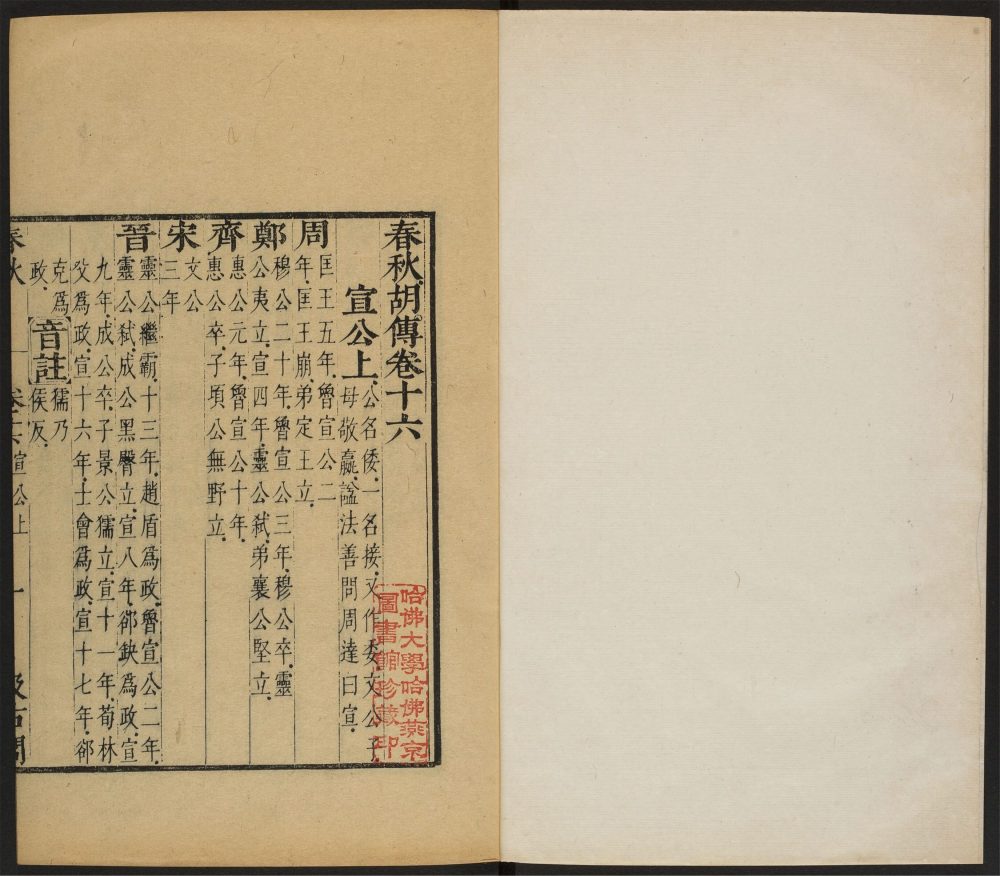 春秋胡傳卷十六
宣公上
公名倭一名接又作委文公子
母敬嬴諡法善問周達曰宣
周
匡王五年魯宣公二
年匡王崩弟定王立
鄭
穆公二十年魯宣公三年穆公卒靈
公夷立宣四年靈公弒弟襄公堅立
齊
惠公元年魯宣公十年
惠公卒子頃公無野立
宋
文公
三年
晉
靈公繼霸十三年趙盾爲政魯宣公二年
靈公弒成公黑臀立宣八年郤缺爲政宣
九年成公卒子景公獳立宣十一年荀林
父爲政宣十六年士會爲政宣十七年郤
克爲
政
音註
獳乃
侯反
春秋
卷十六
宣公上
一
汲古閣
哈佛大學哈佛燕京
圖書館珍藏印